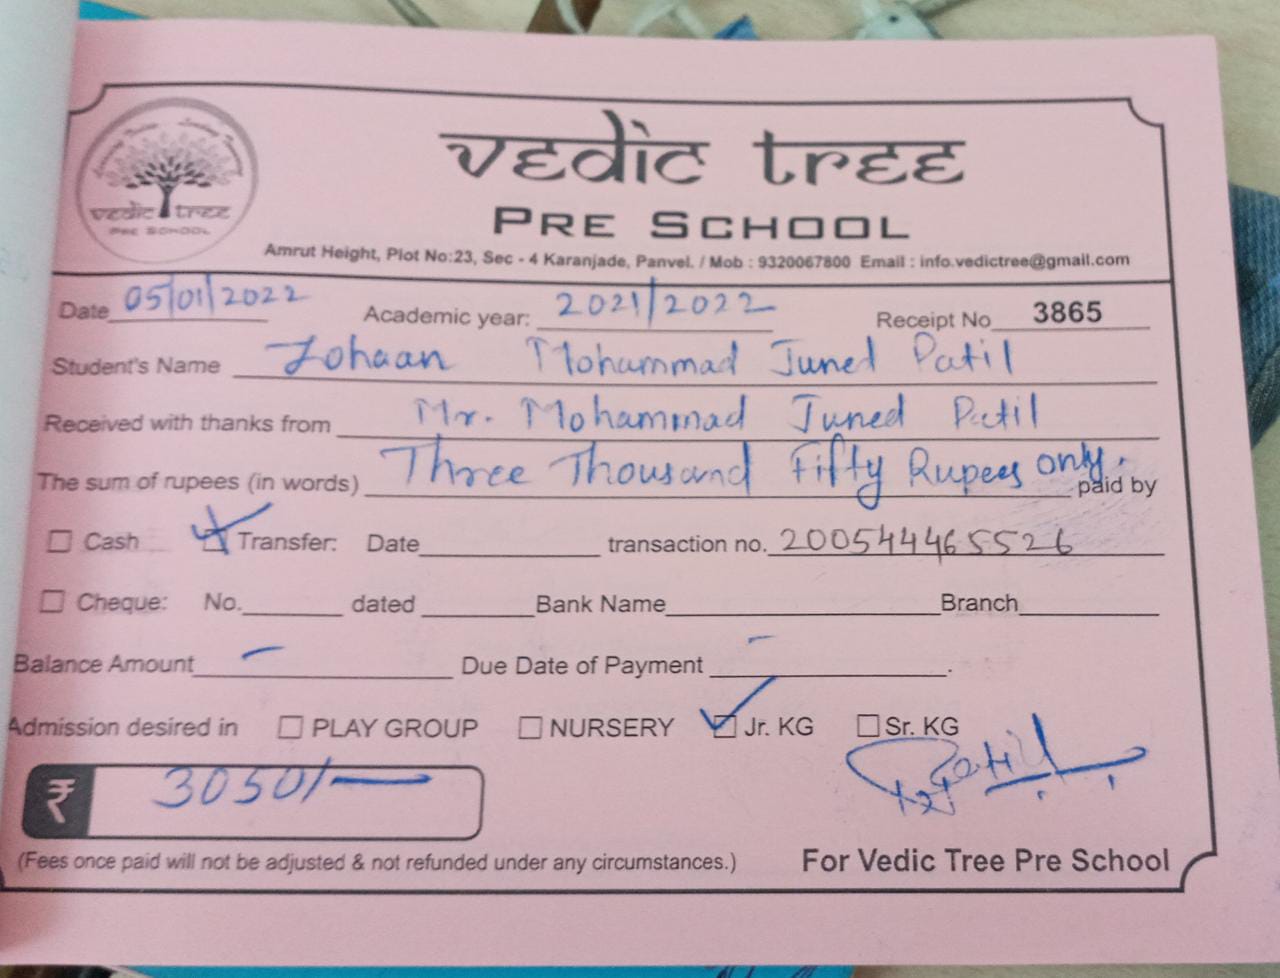 vedic tree
PRE SCHOOL
vedic tree
PRE SCHOOL
Amrut Height, Plot No:23, Sec - 4 Karanjade, Panvel. / Mob : 9320067800 Email : info.vedictree@gmail.com
Date 05/01/2022 Academic year: 2021/2022 Receipt No 3865
Student's Name Zohaan Mohammad Juned Patil
Received with thanks from Mr. Mohammad Juned Patil
The sum of rupees (in words) Three Thousand Fifty Rupees only. paid by
Cash Transfer: Date transaction no. 200544465526
Cheque: No. dated Bank Name Branch
Balance Amount – Due Date of Payment – .
Admission desired in PLAY GROUP NURSERY Jr. KG Sr. KG
₹ 3050/—
(Fees once paid will not be adjusted & not refunded under any circumstances.) For Vedic Tree Pre School